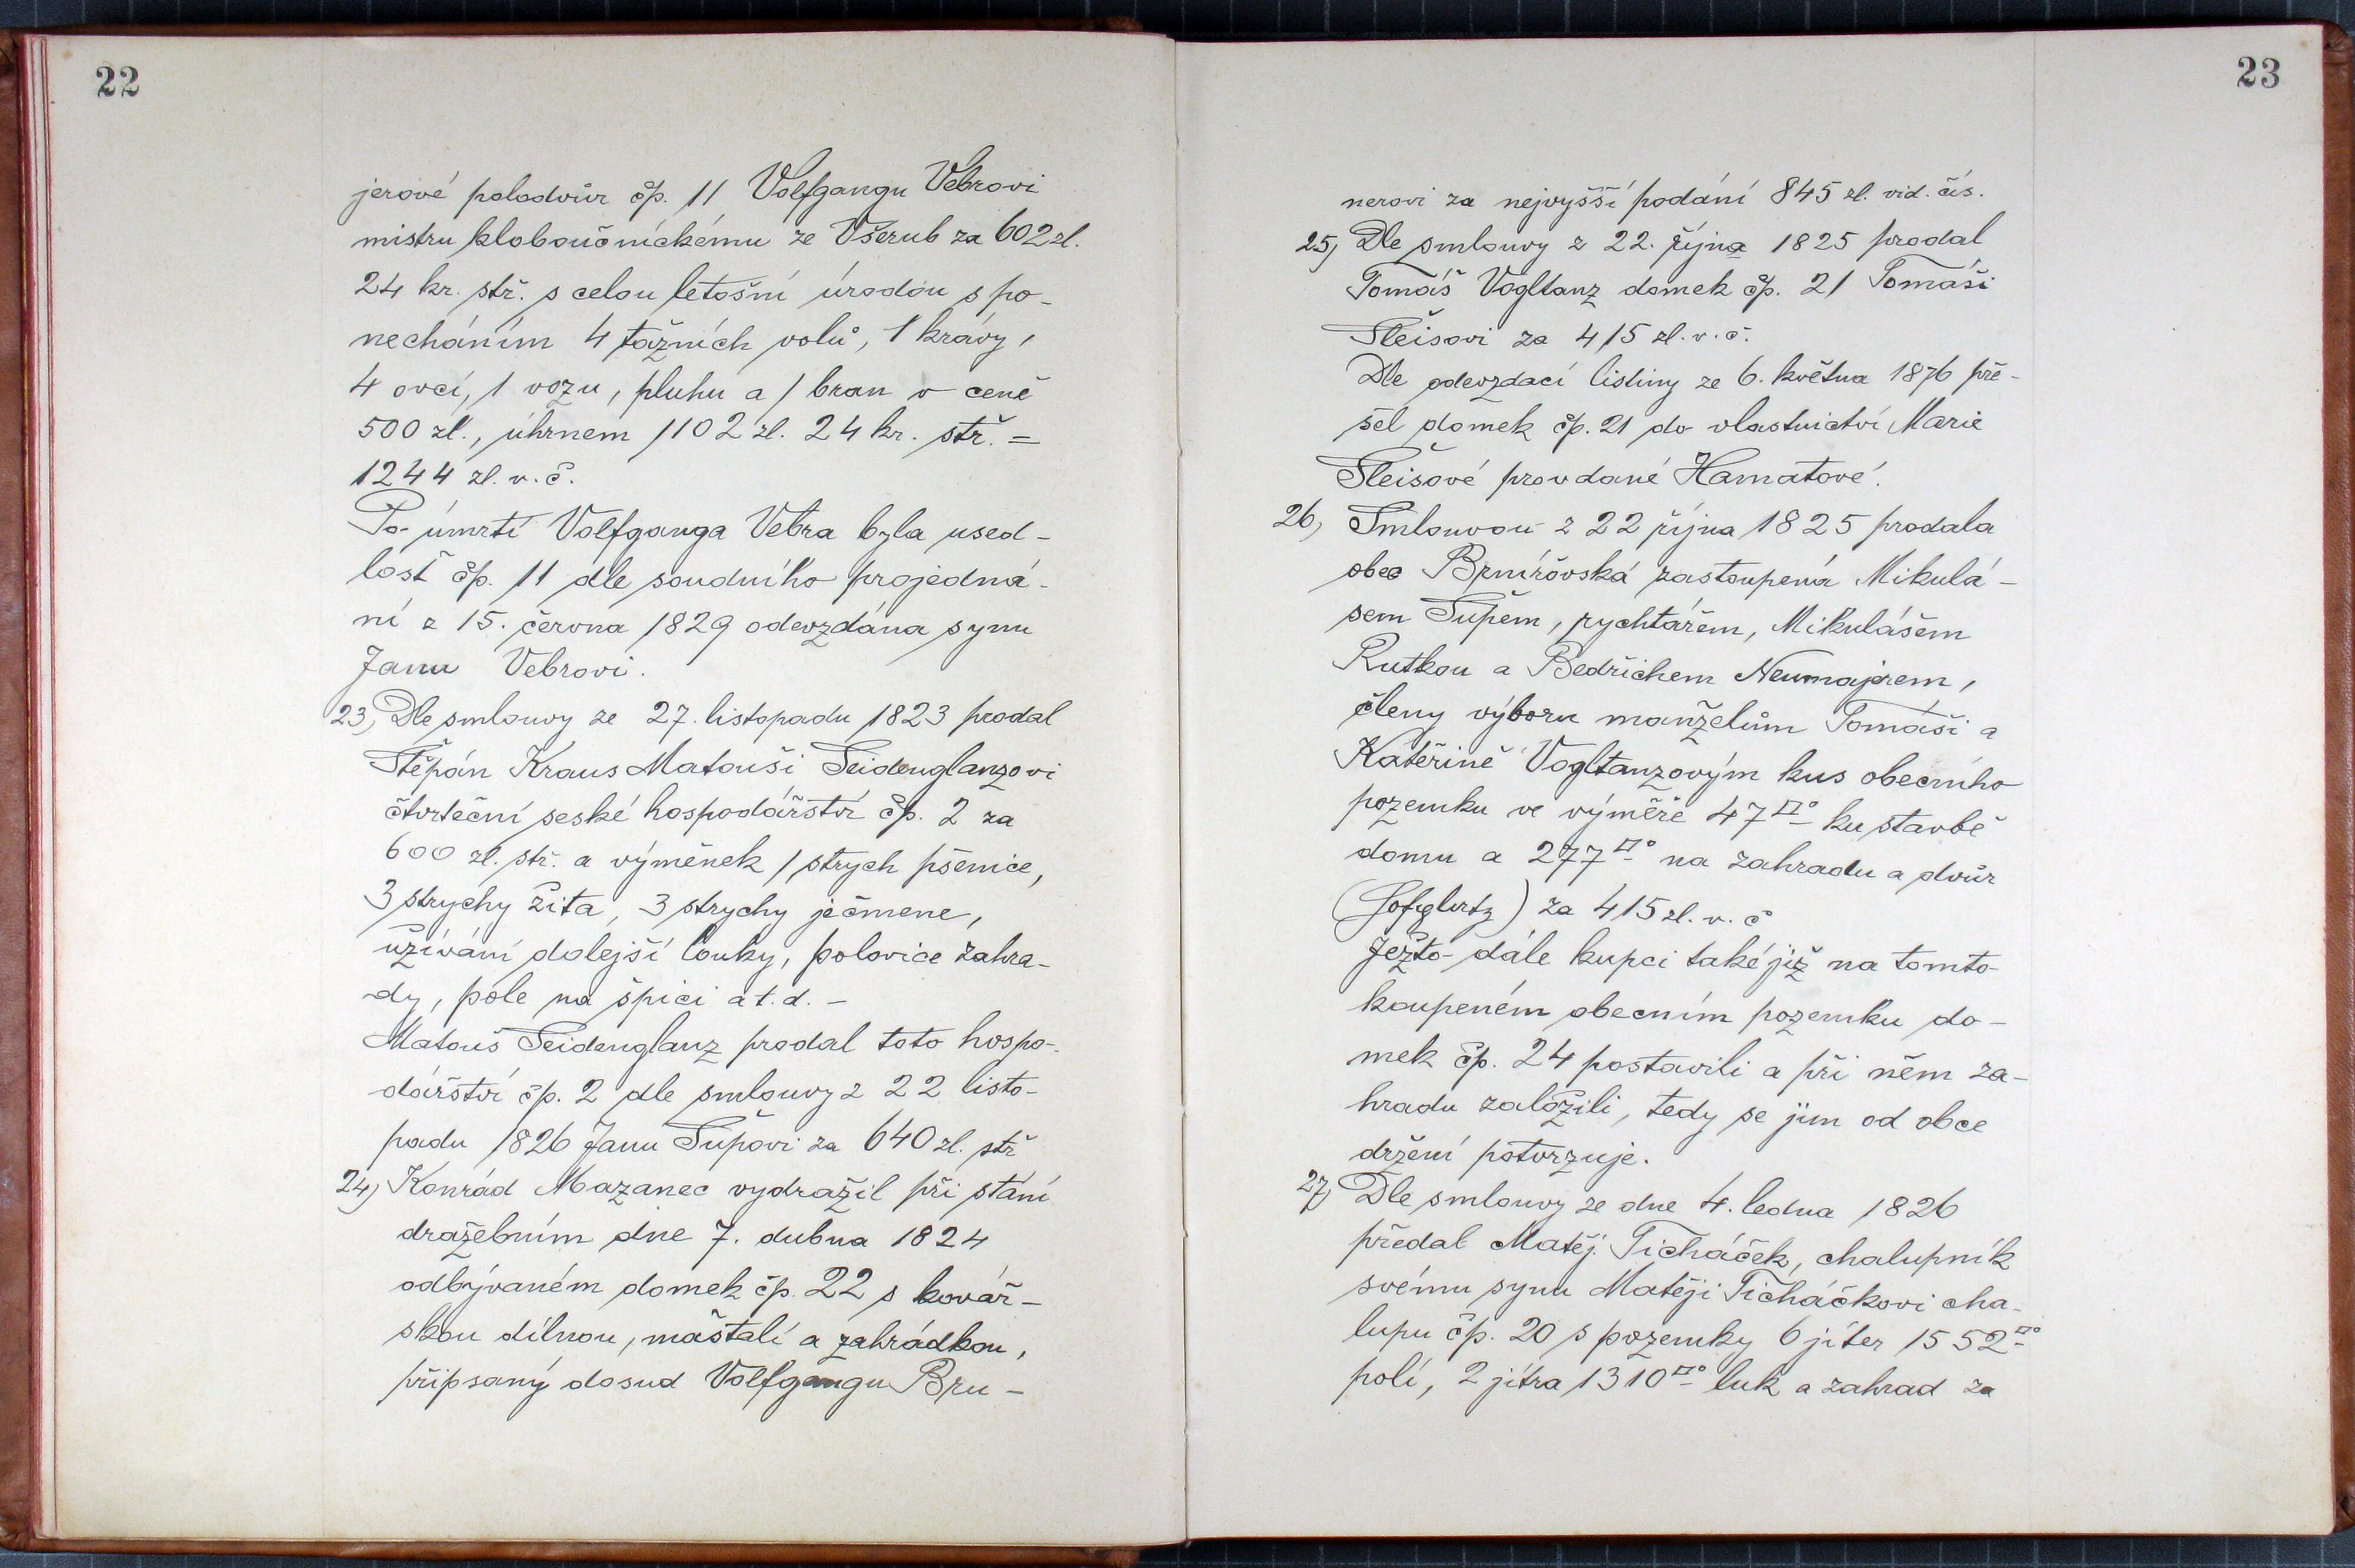 22
jerové polodvůr čp. 11 Volfgangu Vebrovi
mistru kloboučnickému ze Všerub za 602 zl.
24 kr. stř. s celou letošní úrodou s po-
necháním 4 tažních volů, 1 krávy,
4 ovcí, 1 vozu, pluhu a 1 bran v ceně
500 zl., úhrnem 1102 zl. 24 kr. stř. =
1244 zl. v. č.
Po úmrtí Volfganga Vebra byla used-
lost čp. 11 dle soudního projedná-
ní z 15. června 1829 odevzdána synu
Janu Vebrovi.
23, Dle smlouvy ze 27. listopadu 1823 prodal
Štěpán Kraus Matouši Seidenglanzovi
čtvrteční selské hospodářství čp. 2 za
600 zl. stř. a výměnek 1 strych pšenice,
3 strychy žita, 3 strychy ječmene,
užívání dolejší louky, polovice zahra-
dy, pole na špici a t. d. -
Matouš Seidenglanz prodal toto hospo-
dářství čp. 2 dle smlouvy z 22 listo-
padu 1826 Janu Šupovi za 640 zl. stř
24, Konrád Mazanec vydražil při stání
dražebním dne 7. dubna 1824
odbývaném domek čp. 22 s kovář-
skou dílnou, maštalí a zahrádkou,
připsaný dosud Volfgangu Bru-
23
nerovi za nejvyšší podání 845 zl. vid. čís.
25, Dle smlouvy z 22. října 1825 prodal
Tomáš Vogltanz domek čp. 21 Tomáši
Fleisovi za 415 zl. v. č.
Dle odevzdací listiny ze 6. května 1876 pře-
šel domek čp. 21 do vlastnictví Marie
Fleišové provdané Hamatové.
26, Smlouvou z 22 října 1825 prodala
obec Brnířovská zastoupená Mikulá-
sem Šupěm, rychtářem, Mikulášem
Rutkou a Bedřichem Neumajerem,
členy výboru manželům Tomáši a
Kateřině Vogltanzovým kus obecního
pozemku ve výměře 47□° ku stavbě
domu a 277□° na zahradu a dvůr
za 415 zl. v. č
Ježto dále kupci také již na tomto
koupeném obecním pozemku do-
mek čp. 24 postavili a při něm za-
hradu založili, tedy se jim od obce
držení potvrzuje.
27, Dle smlouvy ze dne 4. ledna 1826
předal Matěj Ticháček, chalupník
svému synu Matěji Ticháčkovi cha-
lupu čp. 20 s pozemky 6 jiter 1552□°
polí, 2 jitra 1310□° luk a zahrad za